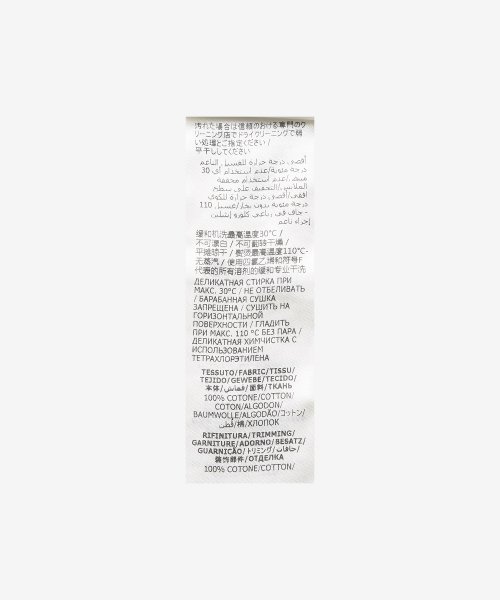 汚れた場合は信頼のおける専門のク
リーニング店でドライクリーニングで弱
い処理とご指定ください /
平干ししてください
أقصى درجة حرارة للغسيل الناعم
30 درجة مئوية/عدم استخدام أي
مبيض/عدم استخدام مجففة
الملابس/التجفيف على سطح
أفقي/أقصى درجة حرارة للكوي
110 درجة مئوية بدون بخار/غسيل
جاف في رباعي كلورو إيثيلين -
إجراء ناعم
缓和机洗最高温度30°C /
不可漂白 / 不可翻转干燥 /
平摊晾干 / 熨烫最高温度110°C-
无蒸汽 / 使用四氯乙烯和符号F
代表的所有溶剂的缓和专业干洗
ДЕЛИКАТНАЯ СТИРКА ПРИ
МАКС. 30°C / НЕ ОТБЕЛИВАТЬ
/ БАРАБАННАЯ СУШКА
ЗАПРЕЩЕНА / СУШИТЬ НА
ГОРИЗОНТАЛЬНОЙ
ПОВЕРХНОСТИ / ГЛАДИТЬ
ПРИ МАКС. 110 °C БЕЗ ПАРА /
ДЕЛИКАТНАЯ ХИМЧИСТКА С
ИСПОЛЬЗОВАНИЕМ
ТЕТРАХЛОРЭТИЛЕНА
TESSUTO/FABRIC/TISSU/
TEJIDO/GEWEBE/TECIDO/
本体/قماش/面料/ТКАНЬ
100% COTONE/COTTON/
COTON/ALGODON/
BAUMWOLLE/ALGODÃO/コットン/
قطن/棉/ХЛОПОК
RIFINITURA/TRIMMING/
GARNITURE/ADORNO/BESATZ/
GUARNICÃO/トリミング/حافات/
装饰部件/ОТДЕЛКА
100% COTONE/COTTON/